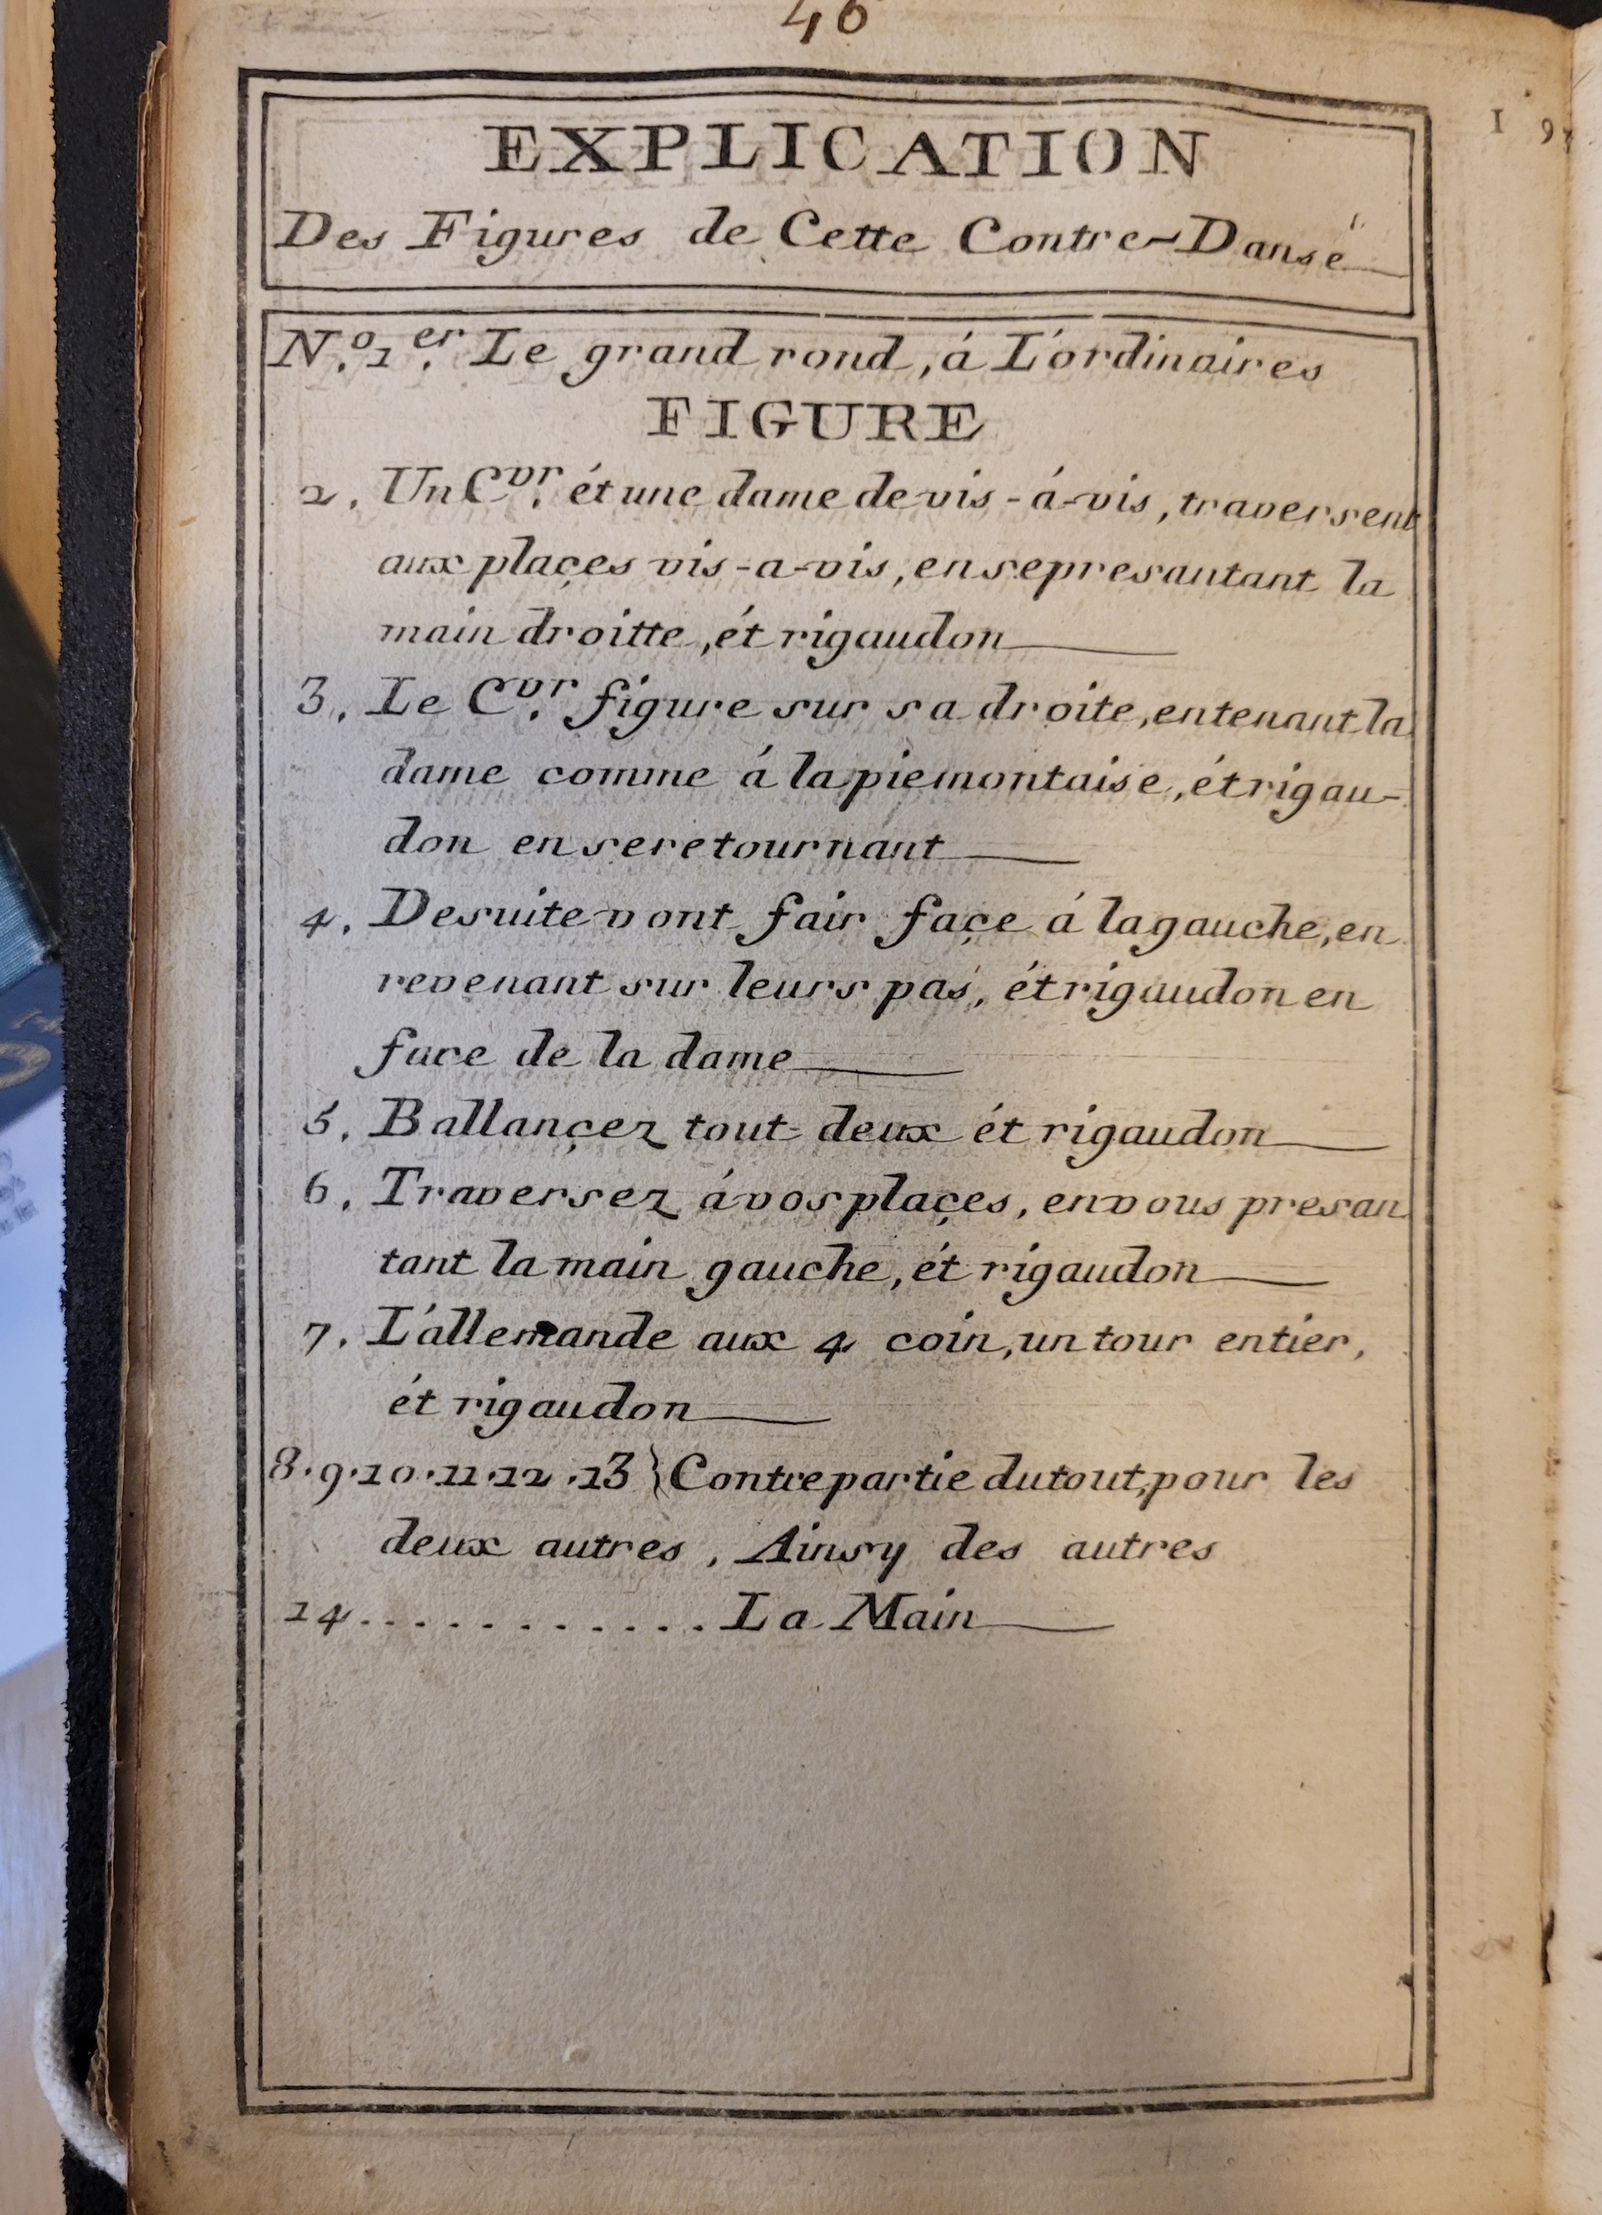 46
EXPLICATION
Des Figures de Cette Contre-Danse
N.º 1.er Le grand rond, á L'ordinaires
FIGURE
2. Un C.vr ét une dame de vis-á-vis, traversent
aux plaçes vis-a-vis, en se presantant la
main droitte, ét rigaudon
3. Le C.vr figure sur sa droite, en tenant la
dame comme á la piemontaise, ét rigau-
don en se retournant
4. De suite vont fair façe á la gauche, en
revenant sur leurs pas, ét rigaudon en
face de la dame
5. Ballançez tout-deux ét rigaudon
6. Traversez á vos plaçes, en vous presan
tant la main gauche, ét rigaudon
7. L'allemande aux 4 coin, un tour entier,
ét rigaudon
8.9.10.11.12.13} Contrepartie du tout, pour les
deux autres, Ainsy des autres
14............La Main